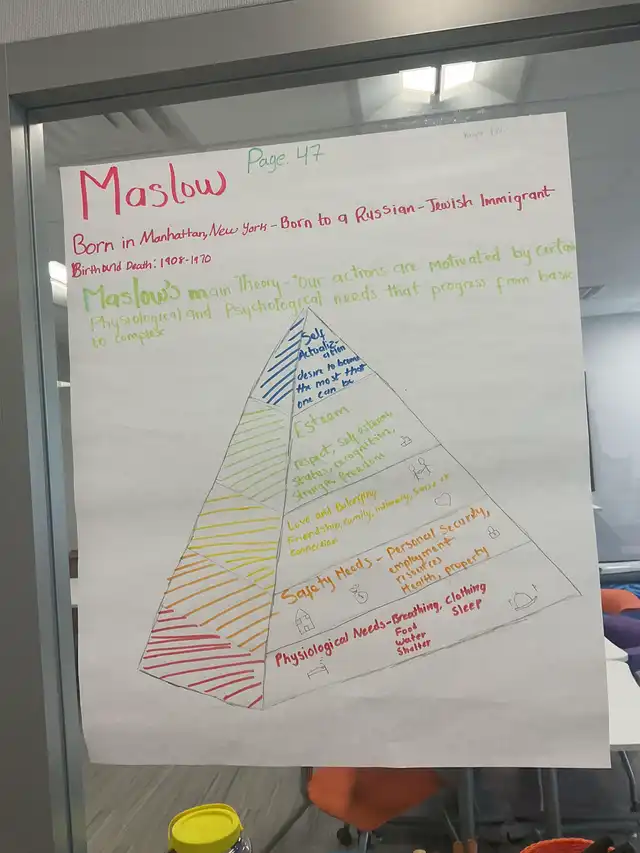 Page. 47
Maslow
Born in Manhattan, New York - Born to a Russian - Jewish Immigrant
Birth and Death: 1908-1970
Maslow's main Theory - "Our actions are motivated by certain
Physiological and Psychological needs that progress from basic
to complex
Self
Actualiz-
ation
desire to become
the most that
one can be
Esteem
respect, self esteem,
status, recognition,
strength, freedom
Love and Belonging
Friendship, Family, intimacy, sense of
connection
Safety Needs - Personal Security,
employment
resources
Health, property
Physiological Needs - Breathing, Clothing
Food
Sleep
water
Shelter